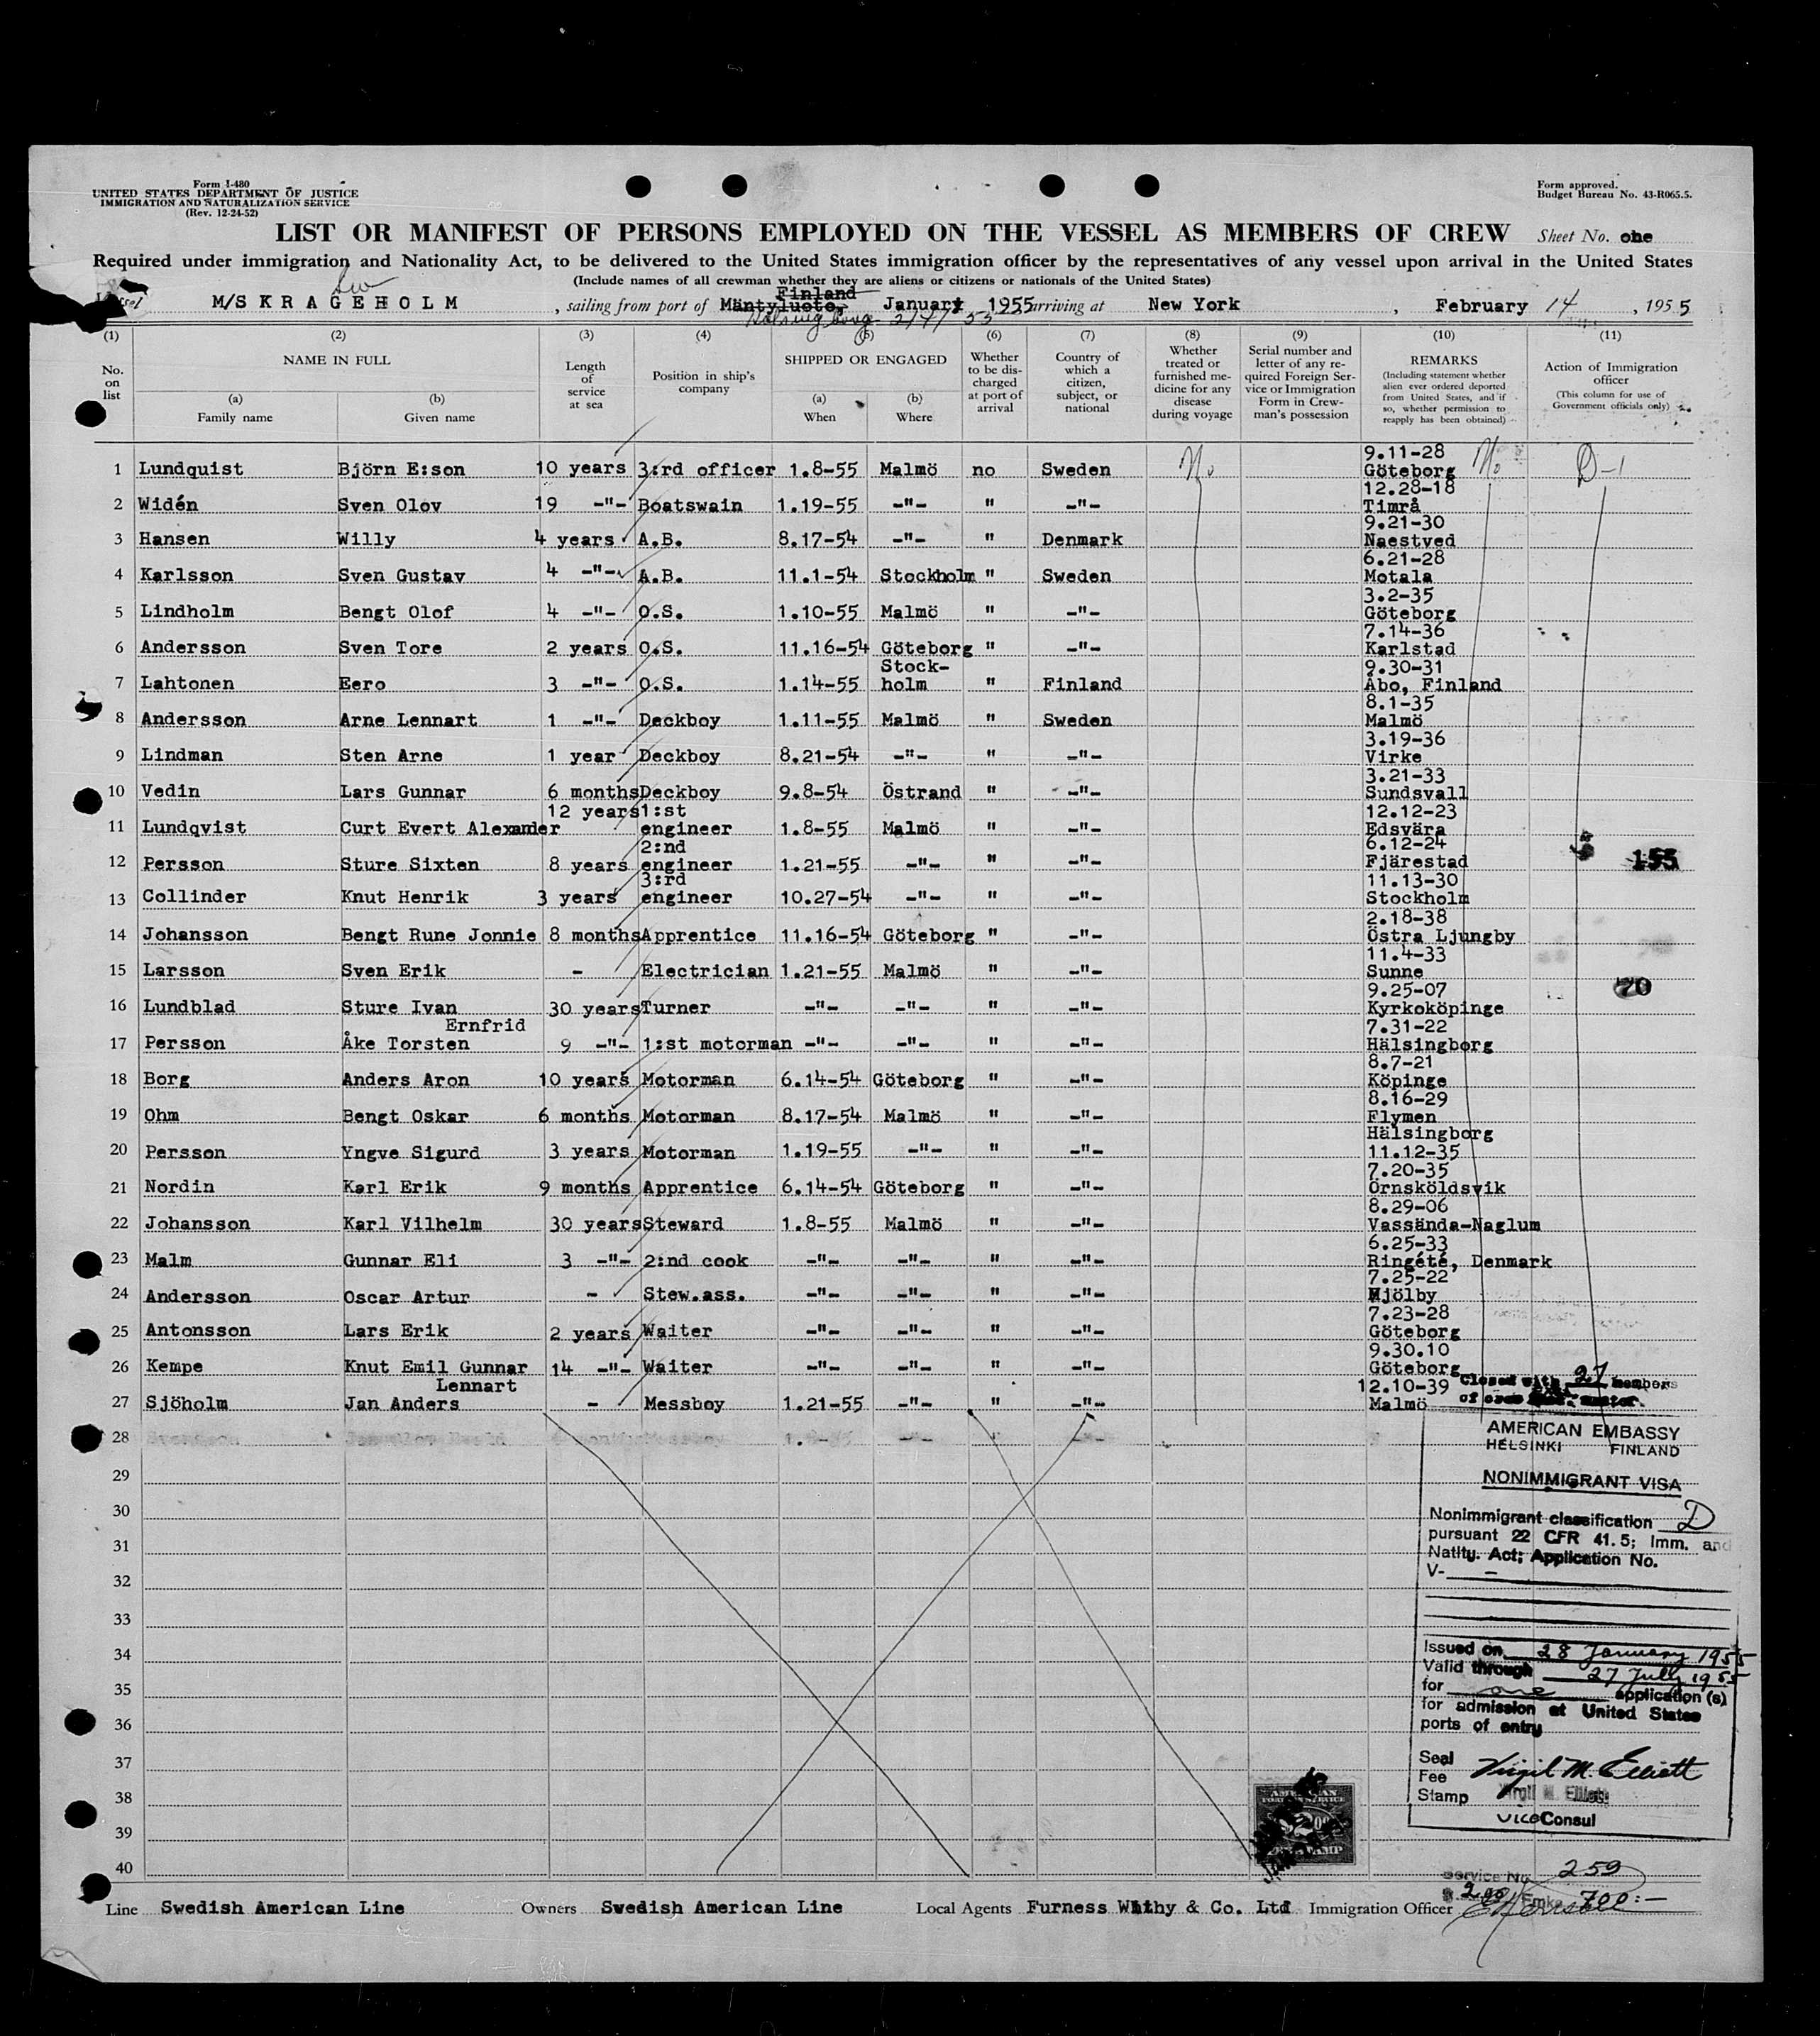 Form I-480
UNITED STATES DEPARTMENT OF JUSTICE
IMMIGRATION AND NATURALIZATION SERVICE
(Rev. 12-24-52)
Form approved.
Budget Bureau No. 43-R065.5.
LIST OR MANIFEST OF PERSONS EMPLOYED ON THE VESSEL AS MEMBERS OF CREW Sheet No. one
Required under immigration and Nationality Act, to be delivered to the United States immigration officer by the representatives of any vessel upon arrival in the United States
(Include names of all crewman whether they are aliens or citizens or nationals of the United States)
Sw
Finland
M/S KRAGEHOLM, sailing from port of Mäntyluoto, January 1955 arriving at New York, February 14, 1955
(1) (2) (3) (4) (5) (6) (7) (8) (9) (10) (11)
No. on list
NAME IN FULL
(a) Family name
(b) Given name
Length of service at sea
Position in ship's company
SHIPPED OR ENGAGED
(a) When
(b) Where
Whether to be discharged at port of arrival
Country of which a citizen, subject, or national
Whether treated or furnished medicine for any disease during voyage
Serial number and letter of any required Foreign Service or Immigration Form in Crewman's possession
REMARKS
(Including statement whether alien ever ordered deported from United States, and if so, whether permission to reapply has been obtained)
Action of Immigration officer
(This column for use of Government officials only)
1 Lundquist Björn E:son 10 years 3:rd officer 1.8-55 Malmö no Sweden No 9.11-28 Göteborg No D-1
2 Widén Sven Olov 19 -"- Boatswain 1.19-55 -"- " -"- 12.28-18 Timrå
3 Hansen Willy 4 years A.B. 8.17-54 -"- " Denmark 9.21-30 Naestved
4 Karlsson Sven Gustav 4 -"- A.B. 11.1-54 Stockholm " Sweden 6.21-28 Motala
5 Lindholm Bengt Olof 4 -"- O.S. 1.10-55 Malmö " -"- 3.2-35 Göteborg
6 Andersson Sven Tore 2 years O.S. 11.16-54 Göteborg " -"- 7.14-36 Karlstad
7 Lahtonen Eero 3 -"- O.S. 1.14-55 Stock-holm " Finland 9.30-31 Åbo, Finland
8 Andersson Arne Lennart 1 -"- Deckboy 1.11-55 Malmö " Sweden 8.1-35 Malmö
9 Lindman Sten Arne 1 year Deckboy 8.21-54 -"- " -"- 3.19-36 Virke
10 Vedin Lars Gunnar 6 months Deckboy 9.8-54 Östrand " -"- 3.21-33 Sundsvall
11 Lundqvist Curt Evert Alexander 12 years 1:st engineer 1.8-55 Malmö " -"- 12.12-23 Edsvära
12 Persson Sture Sixten 8 years 2:nd engineer 1.21-55 -"- " -"- 6.12-24 Fjärestad 155
13 Collinder Knut Henrik 3 years 3:rd engineer 10.27-54 -"- " -"- 11.13-30 Stockholm
14 Johansson Bengt Rune Jonnie 8 months Apprentice 11.16-54 Göteborg " -"- 2.18-38 Östra Ljungby
15 Larsson Sven Erik - Electrician 1.21-55 Malmö " -"- 11.4-33 Sunne
16 Lundblad Sture Ivan 30 years Turner -"- -"- " -"- 9.25-07 Kyrkoköpinge 70
17 Persson Åke Torsten Ernfrid 9 -"- 1:st motorman -"- -"- " -"- 7.31-22 Hälsingborg
18 Borg Anders Aron 10 years Motorman 6.14-54 Göteborg " -"- 8.7-21 Köpinge
19 Ohm Bengt Oskar 6 months Motorman 8.17-54 Malmö " -"- 8.16-29 Flymen
20 Persson Yngve Sigurd 3 years Motorman 1.19-55 -"- " -"- Hälsingborg 11.12-35
21 Nordin Karl Erik 9 months Apprentice 6.14-54 Göteborg " -"- 7.20-35 Örnsköldsvik
22 Johansson Karl Vilhelm 30 years Steward 1.8-55 Malmö " -"- 8.29-06 Vassända-Naglum
23 Malm Gunnar Eli 3 -"- 2:nd cook -"- -"- " -"- 6.25-33 Ringété, Denmark
24 Andersson Oscar Artur - Stew.ass. -"- -"- " -"- 7.25-22 Mjölby
25 Antonsson Lars Erik 2 years Waiter -"- -"- " -"- 7.23-28 Göteborg
26 Kempe Knut Emil Gunnar 14 -"- Waiter -"- -"- " -"- 9.30.10 Göteborg
27 Sjöholm Jan Anders Lennart - Messboy 1.21-55 -"- " -"- 12.10-39 Malmö
Closed with 27 members
28
29
30
31
32
33
34
35
36
37
38
39
40
AMERICAN EMBASSY
HELSINKI FINLAND
NONIMMIGRANT VISA
Nonimmigrant classification D
pursuant 22 CFR 41.5; Imm. and
Natlty. Act; Application No.
V- -
Issued on 28 January 1955
Valid through 27 July 1955
for one application (s)
for admission at United States
ports of entry
Seal
Fee
Stamp
Virgil M. Elliott
Virgil M. Elliott
Vice Consul
Service No. 259
2.00 700:-
Line Swedish American Line Owners Swedish American Line Local Agents Furness Withy & Co. Ltd Immigration Officer